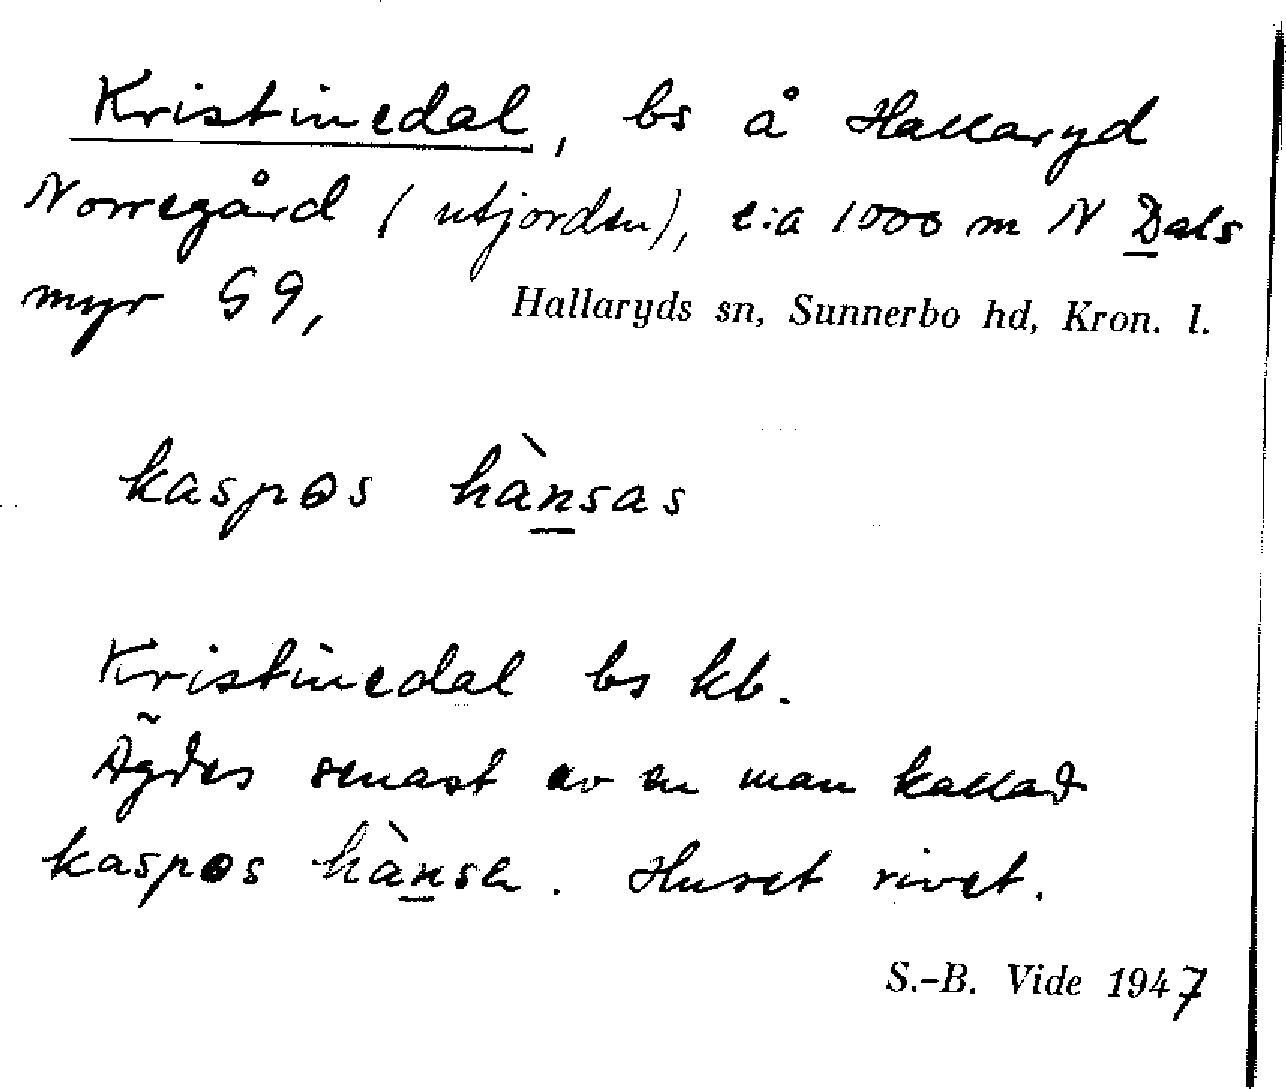 Kristinedal, bs å Hallaryd
Norregård (utjorden), c:a 1000 m N Dals
myr G9,
Hallaryds sn, Sunnerbo hd, Kron. l.
kaspəs hànsas
Kristinedal bs kb.
Ägdes senast av en man kallad
kaspəs hànsa. Huset rivet.
S.-B. Vide 1947